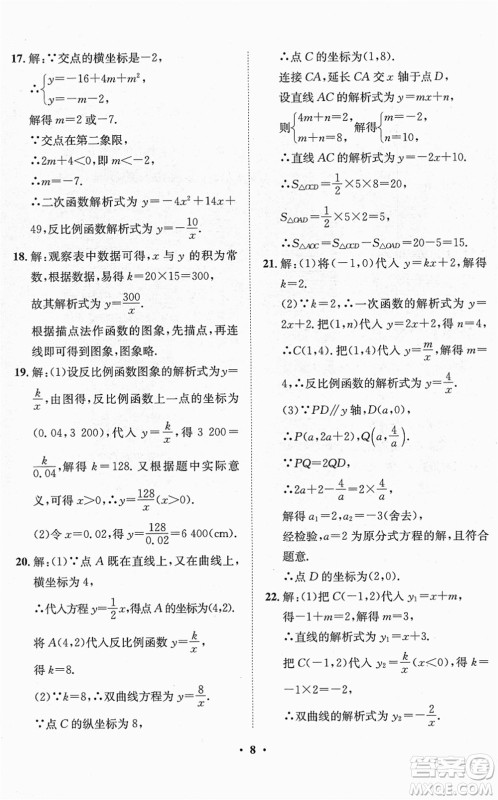 17. 解：∵交点的横坐标是－2，
∴{y＝－16＋4m＋m²，
y＝－m－2，
解得 m＝2 或 m＝－7.
∵交点在第二象限，
∴m＝－7.
∴二次函数解析式为 y＝－4x²＋14x＋
49，反比例函数解析式为 y＝－10/x.
18. 解：观察表中数据可得，x 与 y 的积为常
数，根据数据，易得 k＝20×15＝300，
故其解析式为 y＝300/x.
根据描点法作函数的图象，先描点，再连
线就得该函数的图象，图象略.
19. 解：(1)设反比例函数图象的解析式为y＝
k/x，由图得，函数图象经过点的坐标为
(0.04，3 200)，代入 y＝k/x，得 3 200＝
k/0.04，解得 k＝128. 又根据实际意
义，可知 x＞0，∴y＝128/x(x＞0).
(2)令 x＝0.02，得 y＝128/0.02＝6 400(cm).
20. 解：(1)∵点 A 既在直线上，又在曲线上，
横坐标为 4，
∴代入方程 y＝1/2x，得 A 的坐标为(4，2).
将 A(4，2)代入反比例函数 y＝k/x，
得 k＝8.
(2)∵k＝8，∴双曲线方程为 y＝8/x.
∵点 C 的纵坐标为 8，
∴点 C 的坐标为(1，8).
连接 CA，延长 CA 交 x 轴于点 D.
设直线 AC 的解析式为 y＝mx＋n，
则{4m＋n＝2，
m＋n＝8，
解得{m＝－2，
n＝10.
∴直线 AC 的解析式为 y＝－2x＋10.
∴S△OCD＝1/2×5×8＝20.
∵S△OAD＝1/2×5×2＝5，
∴S△AOC＝S△OCD－S△OAD＝20－5＝15.
21. 解：(1)将(－1，0)代入 y＝kx＋2，解得
k＝2.
(2)∵k＝2，∴一次函数的解析式为 y＝
2x＋2. 把(1，n)代入，解得 n＝4，
∴(1，4). 把(1，4)代入 y＝m/x，解得 m＝
4.
(3)∵PD∥y 轴，
∴P(a，2a＋2)，Q(a，4/a).
∵PQ＝2QD，
∴2a＋2－4/a＝2×4/a.
解得 a₁＝2，a₂＝－3(舍去)，
经检验，a＝2 为原分式方程的解，且符合
题意.
∴点 D 的坐标为(2，0).
22. 解：(1)把 C(－1，2)代入 y₁＝x＋m，
得－1＋m＝2，解得 m＝3.
∴直线的解析式为 y₁＝x＋3.
把 C(－1，2)代入 y₂＝k/x(x＜0)，得 k＝
－1×2＝－2.
∴双曲线的解析式为 y₂＝－2/x.
• 8 •